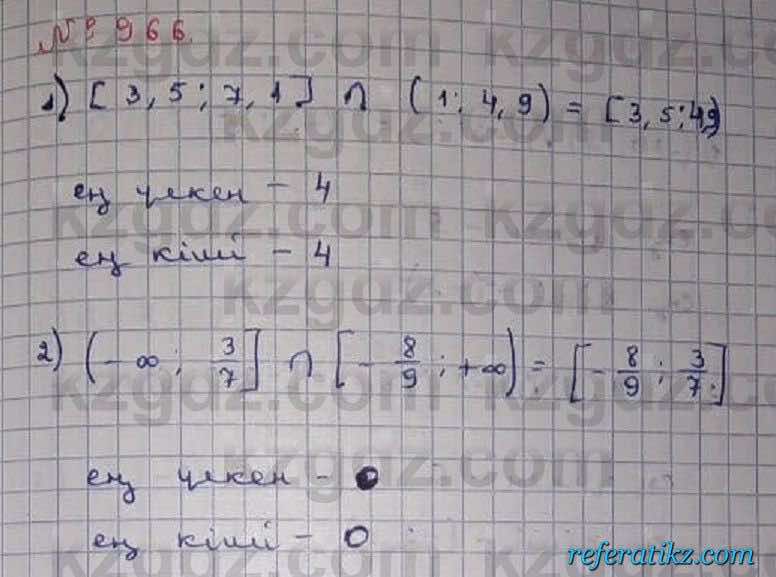 № 966
1) [3,5; 7,1] ∩ (1; 4,9) = [3,5; 4,9)
ең үлкен - 4
ең кіші - 4
2) (-∞; 3/7] ∩ [-8/9; +∞) = [-8/9; 3/7]
ең үлкен - 0
ең кіші - 0
kzgdz.com
referatikz.com